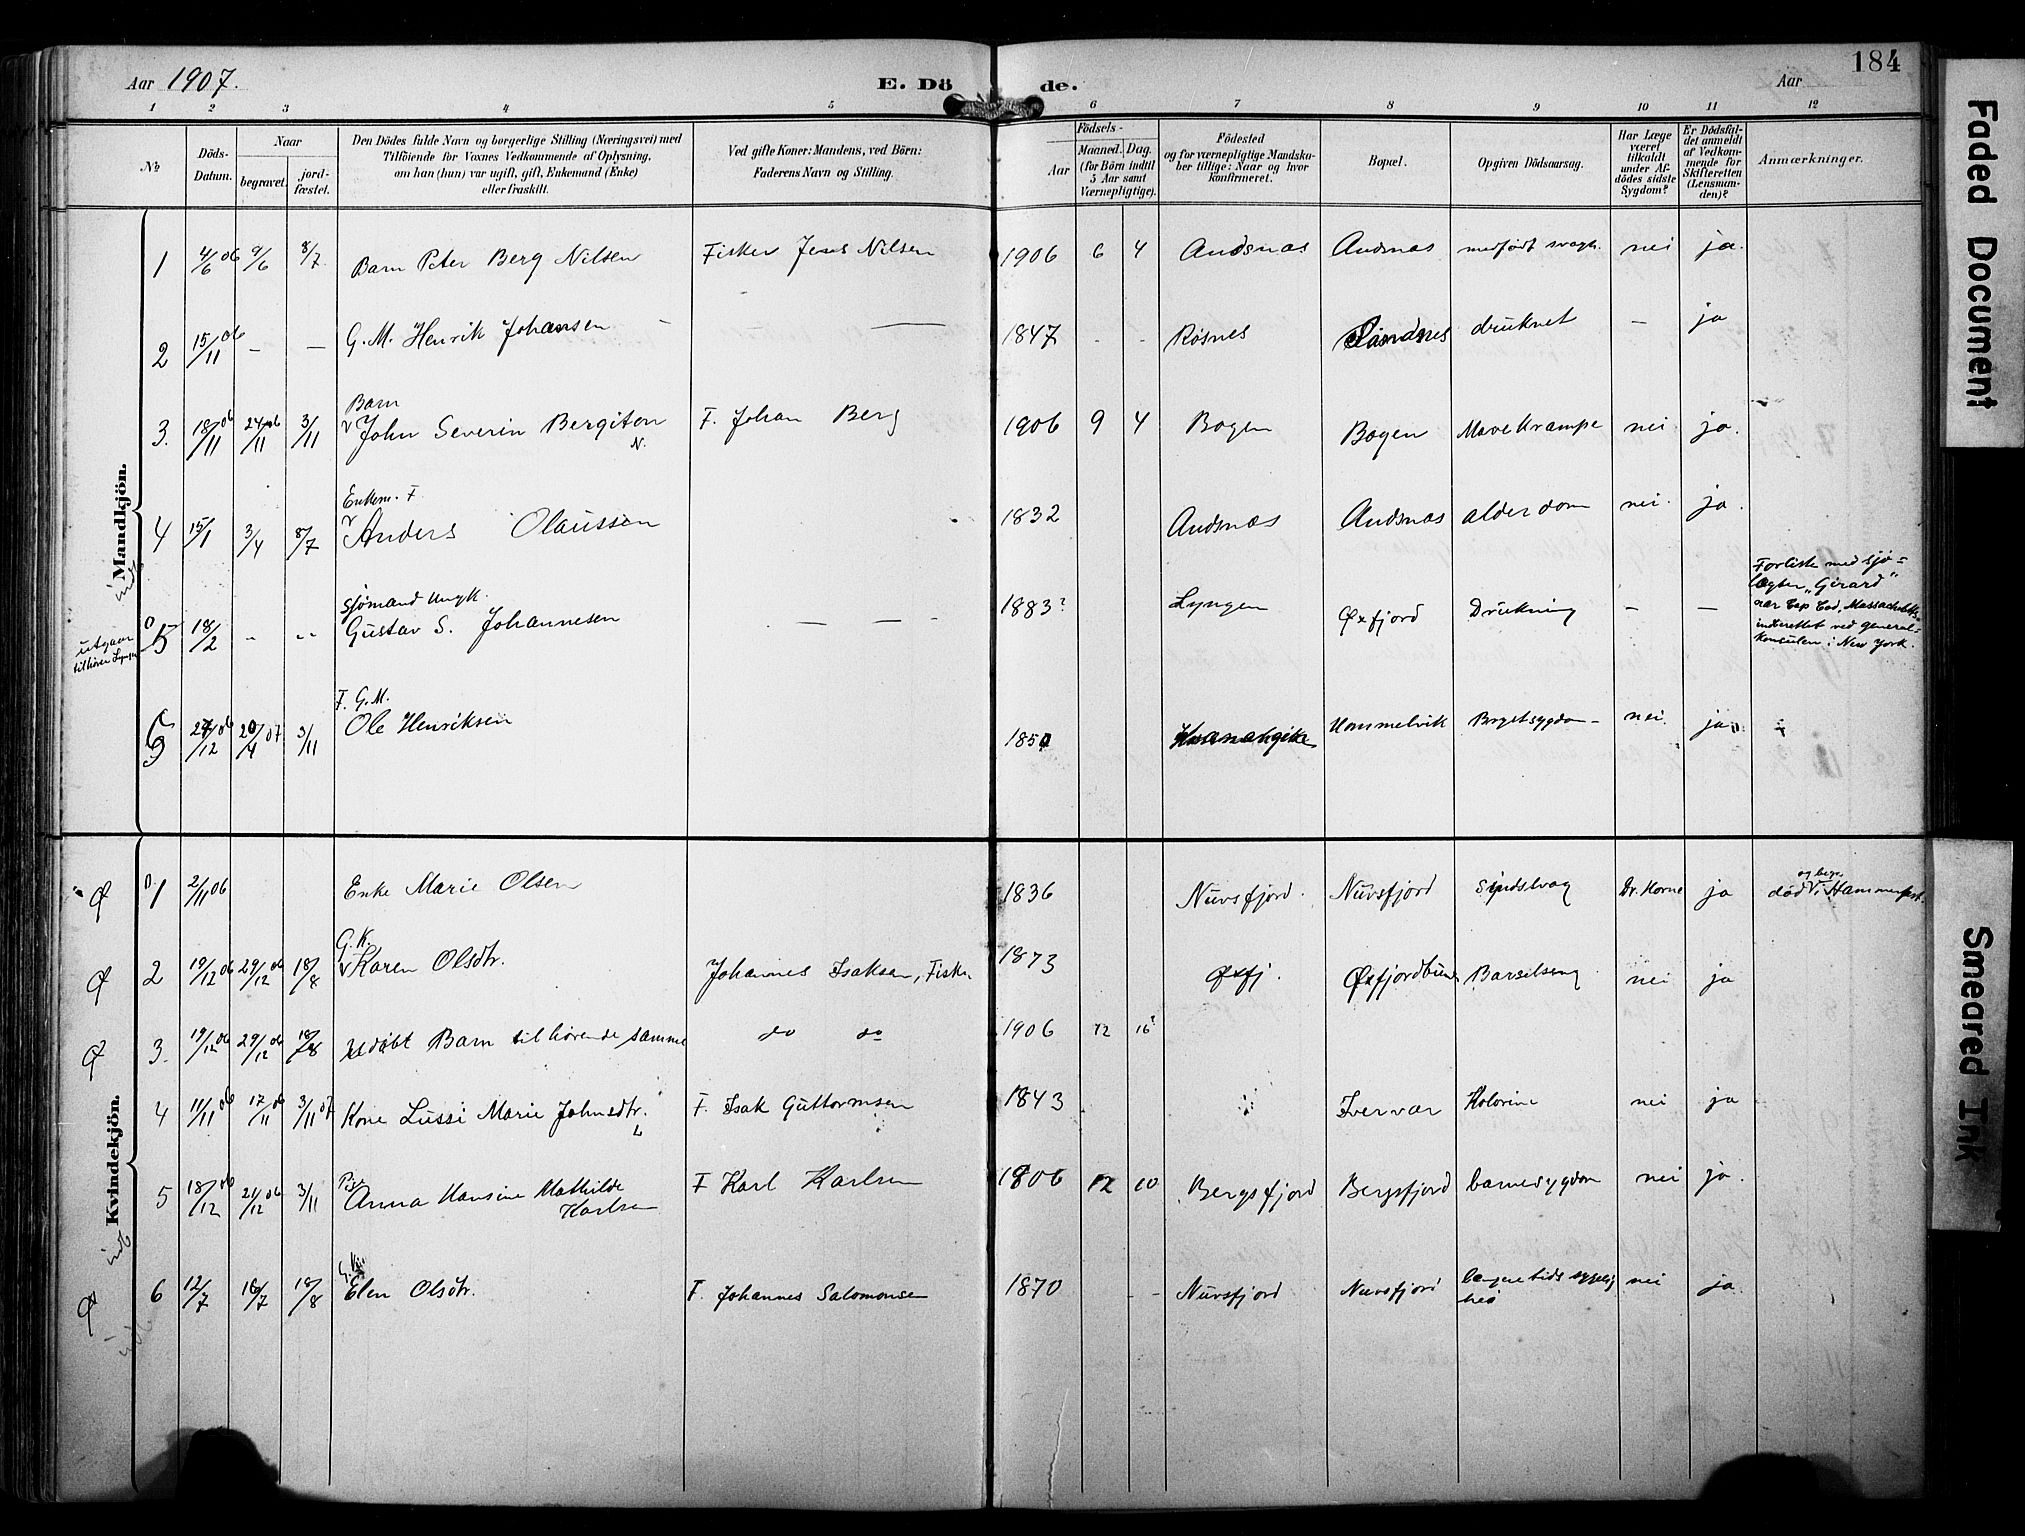 184
Aar 1907.
E. Dö de.
Aar
1 2 3 4 5 6 7 8 9 10 11 12
No
Döds-Datum.
Naar
begravet.
jord-fæstet.
Den Dödes fulde Navn og borgerlige Stilling (Næringsvei) med
Tilföiende for Voxnes Vedkommende af Oplysning,
om han (hun) var ugift, gift, Enkemand (Enke)
eller fraskilt.
Ved gifte Koner: Mandens, ved Börn:
Faderens Navn og Stilling.
Födsels-
Aar
Maaned. Dag.
(for Börn indtil
5 Aar samt
Værnepligtige).
Födested
og for værnepligtige Mandska-
ber tillige: Naar og hvor
konfirmeret.
Bopæl.
Opgiven Dödsaarsag.
Har Læge
været
tilkaldt
under Af-
dödes sidste
Sygdom?
Er Dödsfal-
det anmeldt
af Vedkom-
mende for
Skifteretten
(Lensman-
den)?
Anmærkninger.
Mandkjön.
1 4/6 06 9/6 8/7 Barn Peter Berg Nilsen Fisker Jens Nilsen 1906 6 4 Andsnæs Andsnæs medfödt svagh. nei ja.
2 15/11 06 – – G.M. Henrik Johansen — 1847 - - Røsnes Sandnes druknet – ja
Barn
3. 18/11 06 24/11 06 3/11 John Severin Bergiton N. F. Johan Berg 1906 9 4 Bogen Bogen Mavekrampe nei ja.
Enkem. F.
4 15/1 3/4 8/7 Anders Olaussen 1832 Andsnæs Andsnæs alderdom nei. ja.
utgaar
tilhører Lyngen
Sjömand Ungk.
5 18/2 - - Gustav S. Johannesen — — 1883? Lyngen Øxfjord Drukning – –
Forliste med sjö-
lægter "Girard"
nær Cap Cod, Massachusetts
indberettet ved general-
konsulen i New York.
F. G.M.
6 27/12 06 20/4 07 3/11 Ole Henriksen 1850 Kvænangen Hommelvik Brystsygdom nei. ja
Kvindekjön.
Ø 1 2/11 06 Enke Marie Olsen 1836 Nuvsfjord. Nuvsfjord Sindslvag Dr. Horne ja död og begr. i Hammerfest.
G.K.
Ø 2 19/12 06 29/12 06 18/8 Karen Olsdtr. Johannes Isaksen, Fisker 1873 Øxfj. Øxfjordbund Barselseng nei ja
Ø 3. 19/12 06 29/12 06 18/8 Udöbt Barn tilhørende samme do do 1906 12 16?
4 11/11 06 17/11 06 3/11 07 Kone Lussi Marie Johnsdtr. L F. Isak Guttormsen 1843 Ivervær Kolerine nei ja
5 18/12 06 21/12 06 3/11 Anna Hansine Mathilde
Karlsen F Karl Karlsen 1906 12 10 Bergsfjord Bergsfjord barnesygdom nei ja.
Ø 6 12/7 16/7 18/8 Elen Olsdtr. F. Johannes Salomonsen 1870 - - Nuvsfjord Nuvsfjord længere tids sygelig-
hed nei ja.
Faded Document
Smeared Ink